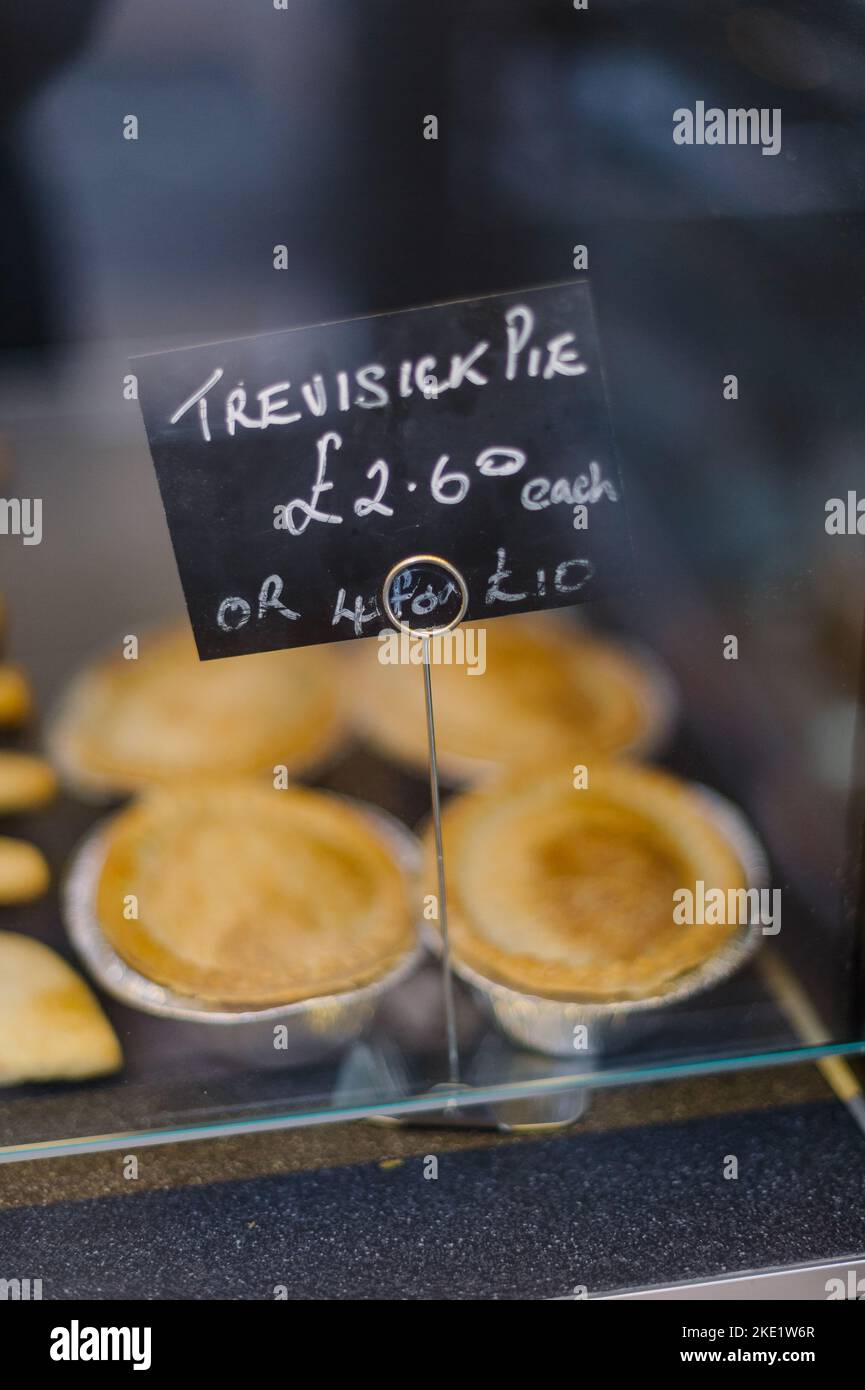 TREVISICK PIE
£2.60 each
OR 4 for £10
alamy
alamy
Image ID: 2KE1W6R
www.alamy.com